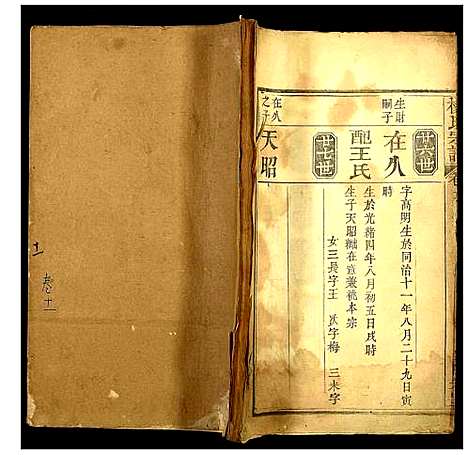 氏宗譜
卷
廿六世
生財
嗣子
在八
字高明生於同治十一年八月二十九日寅
時
配王氏
生於光緒四年八月初五日戌時
生子天昭繼在宣兼祧本宗
女三長字王 次字梅 三未字
廿七世
在八
之子
天昭
卷十一